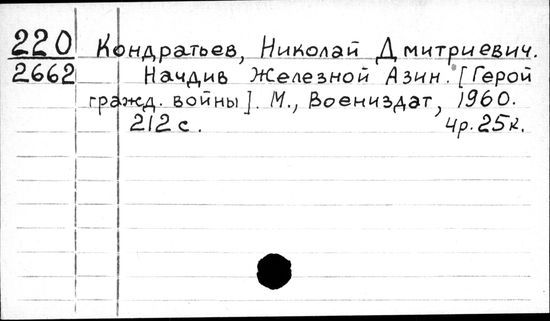 220 Кондратьев, Николай Дмитриевич.
2662 Начдив Железной Азин. [Герой
гражд. войны]. М., Воениздат, 1960.
212 с. 4р. 25к.